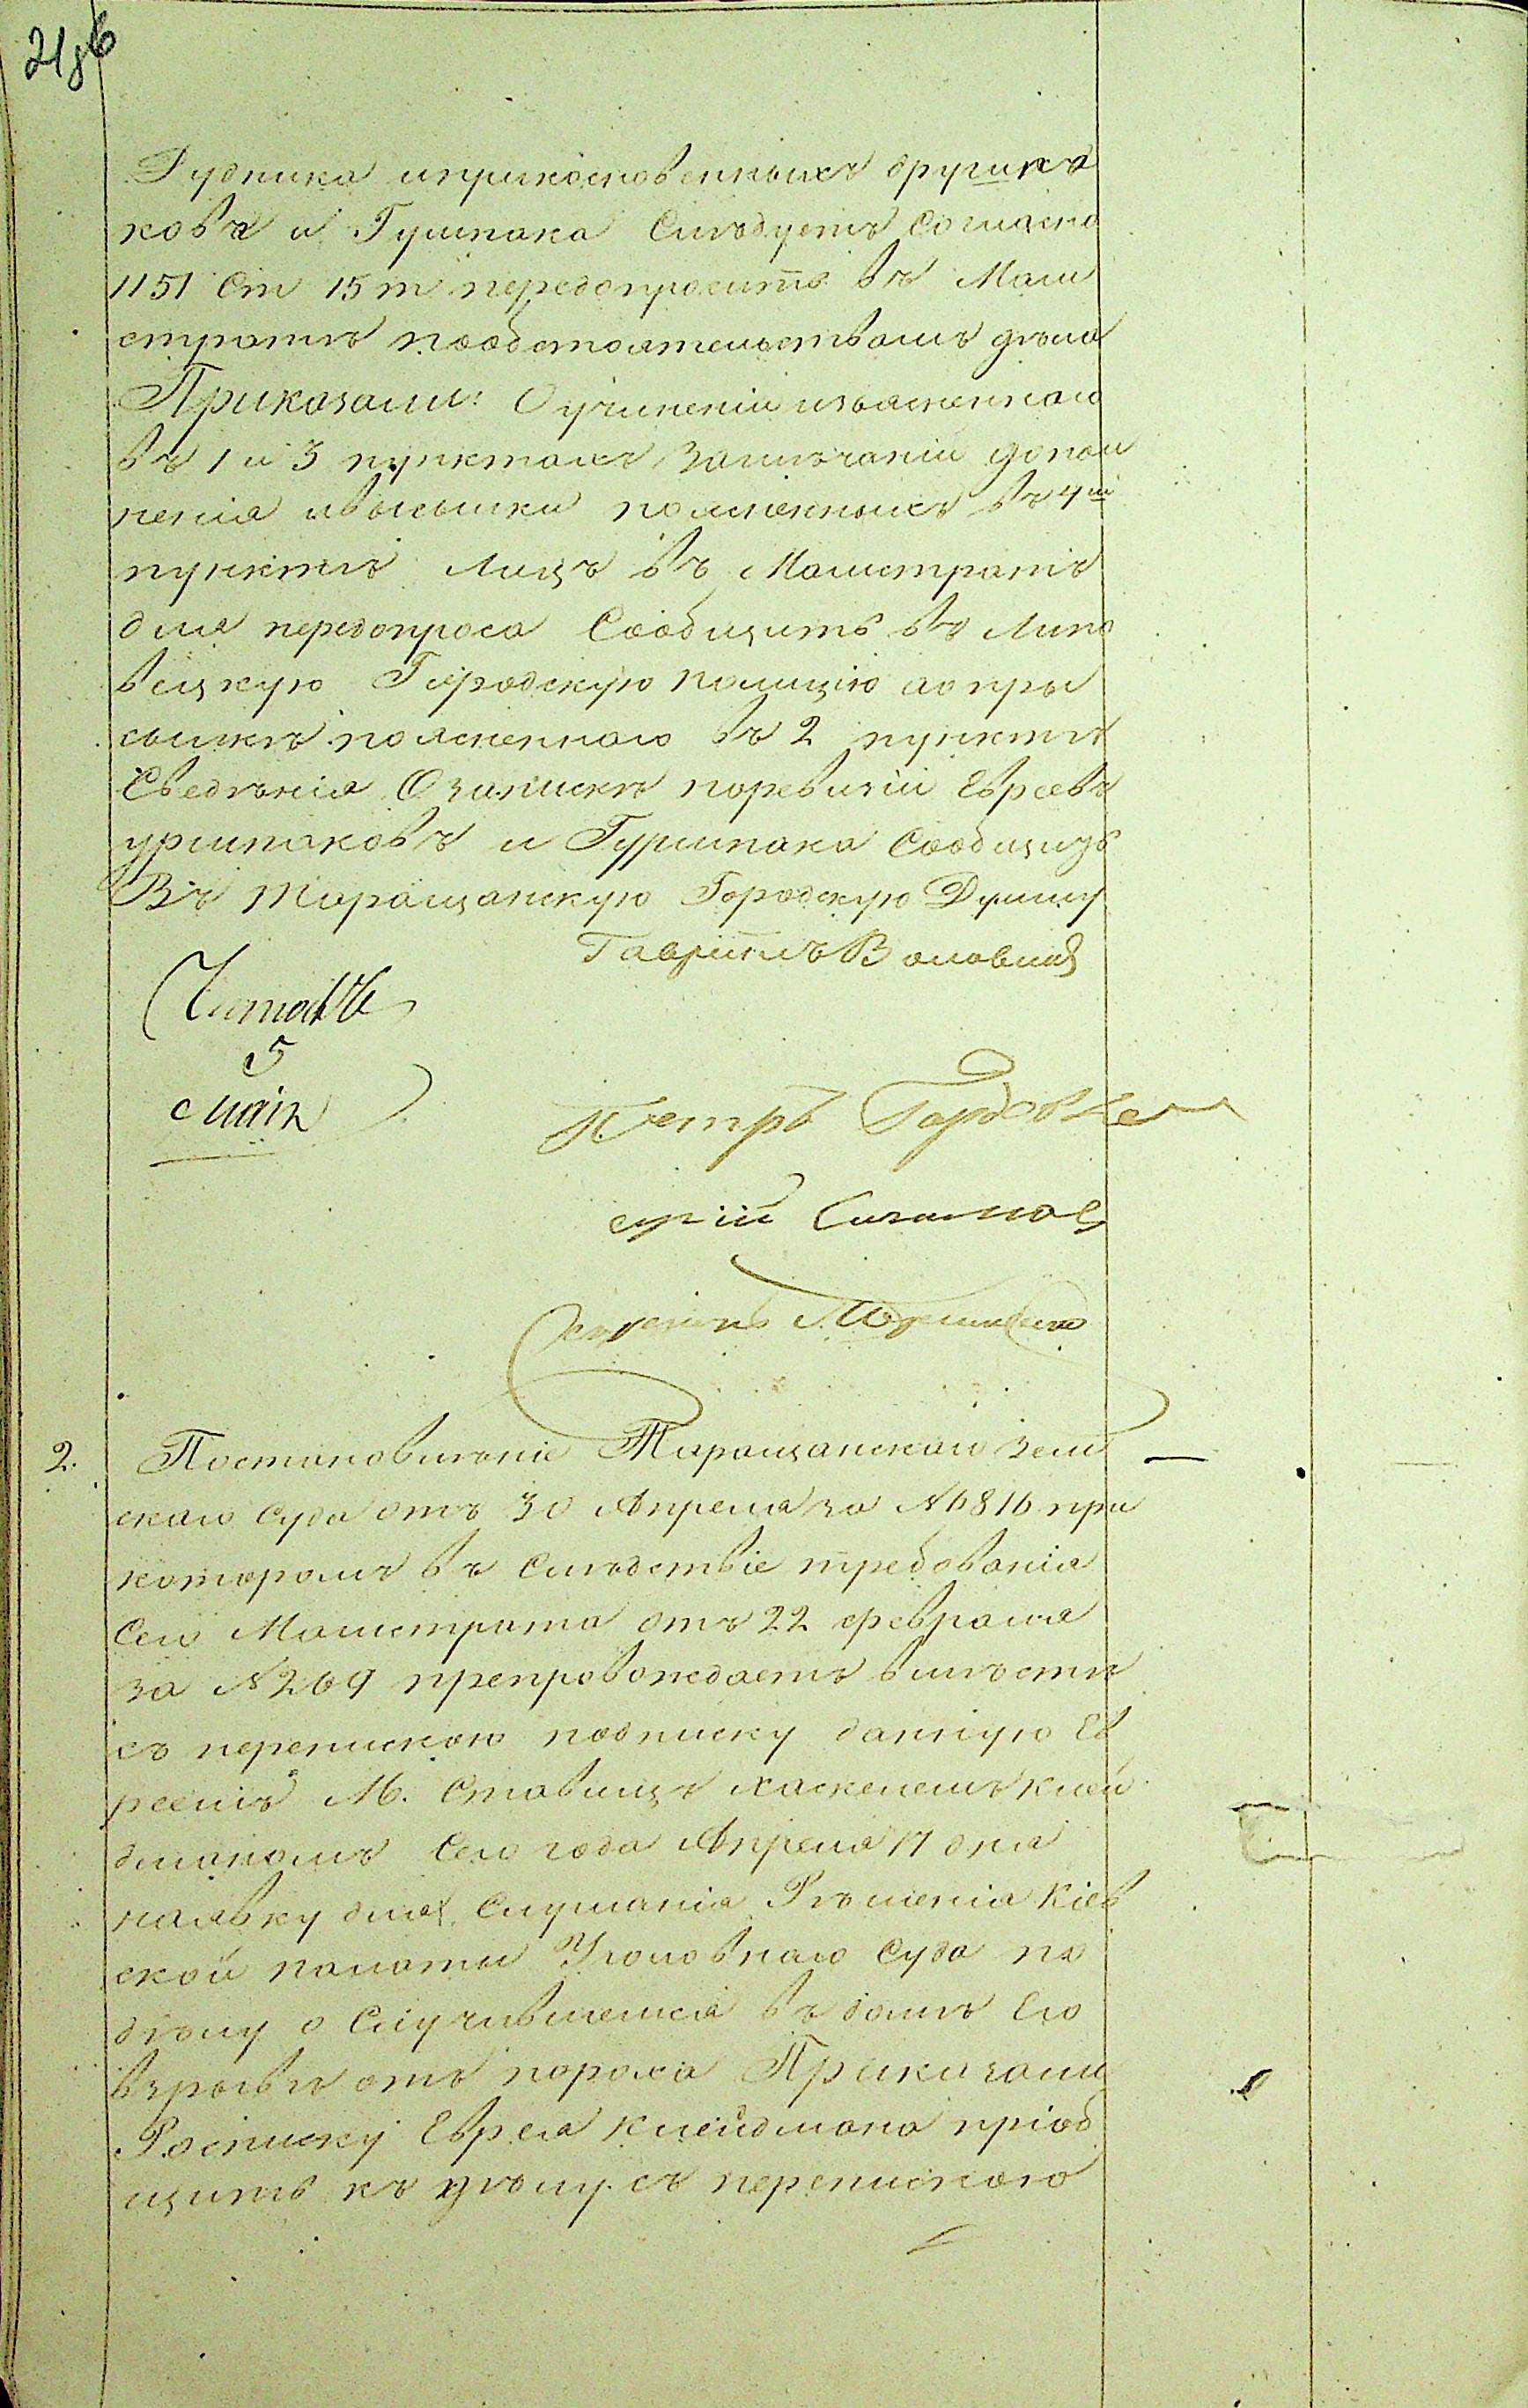 Рудника иприкосновенныхъ
ковъ и Гуршпака Слѣдуетъ Согласно
1151 Ст 15 т передопросить въ Маги
стратѣ пообстоятельствамъ дѣла
Приказали: Оучиненіи изъясненнаго
въ 1 и 3 пунктахъ замѣчаній допол
ненія ивысылки поясненныхъ въ 4мъ
пунктѣ Лицъ въ Магистратъ
для передопроса Сообщить въ Липо
вецкую Городскую полицію аопри
сылкѣ поясненнаго въ 2 пунктѣ
Сведѣнія Озапискѣ поревизіи Евреевъ
уршпаковъ и Гуршпака Сообщить
Въ Таращанскую Городскую Думу
Гавріилъ
Читалъ
5
Маія
Петръ
2. Постановленіе Таращанскаго Зем
скаго Суда отъ 30 Апреля за №6816 при
которомъ въ Слѣдствіе требованія
Сего Магистрата отъ 22 февраля
за №269 препровождаетъ вмѣстѣ
съ перепискою подписку данную Ев
реемъ М. Ставищъ Хаскелемъ Клей
дманомъ Сего года Апреля 17 дня
наявку для Слушанія Рѣшенія Кіев
ской палаты Уголовнаго Суда по
дѣлу о Случившемся въ домѣ Его
взрывѣ отъ пороха Приказали
Росписку Еврея Клейдмана пріоб
щить къ дѣлу съ перепискою